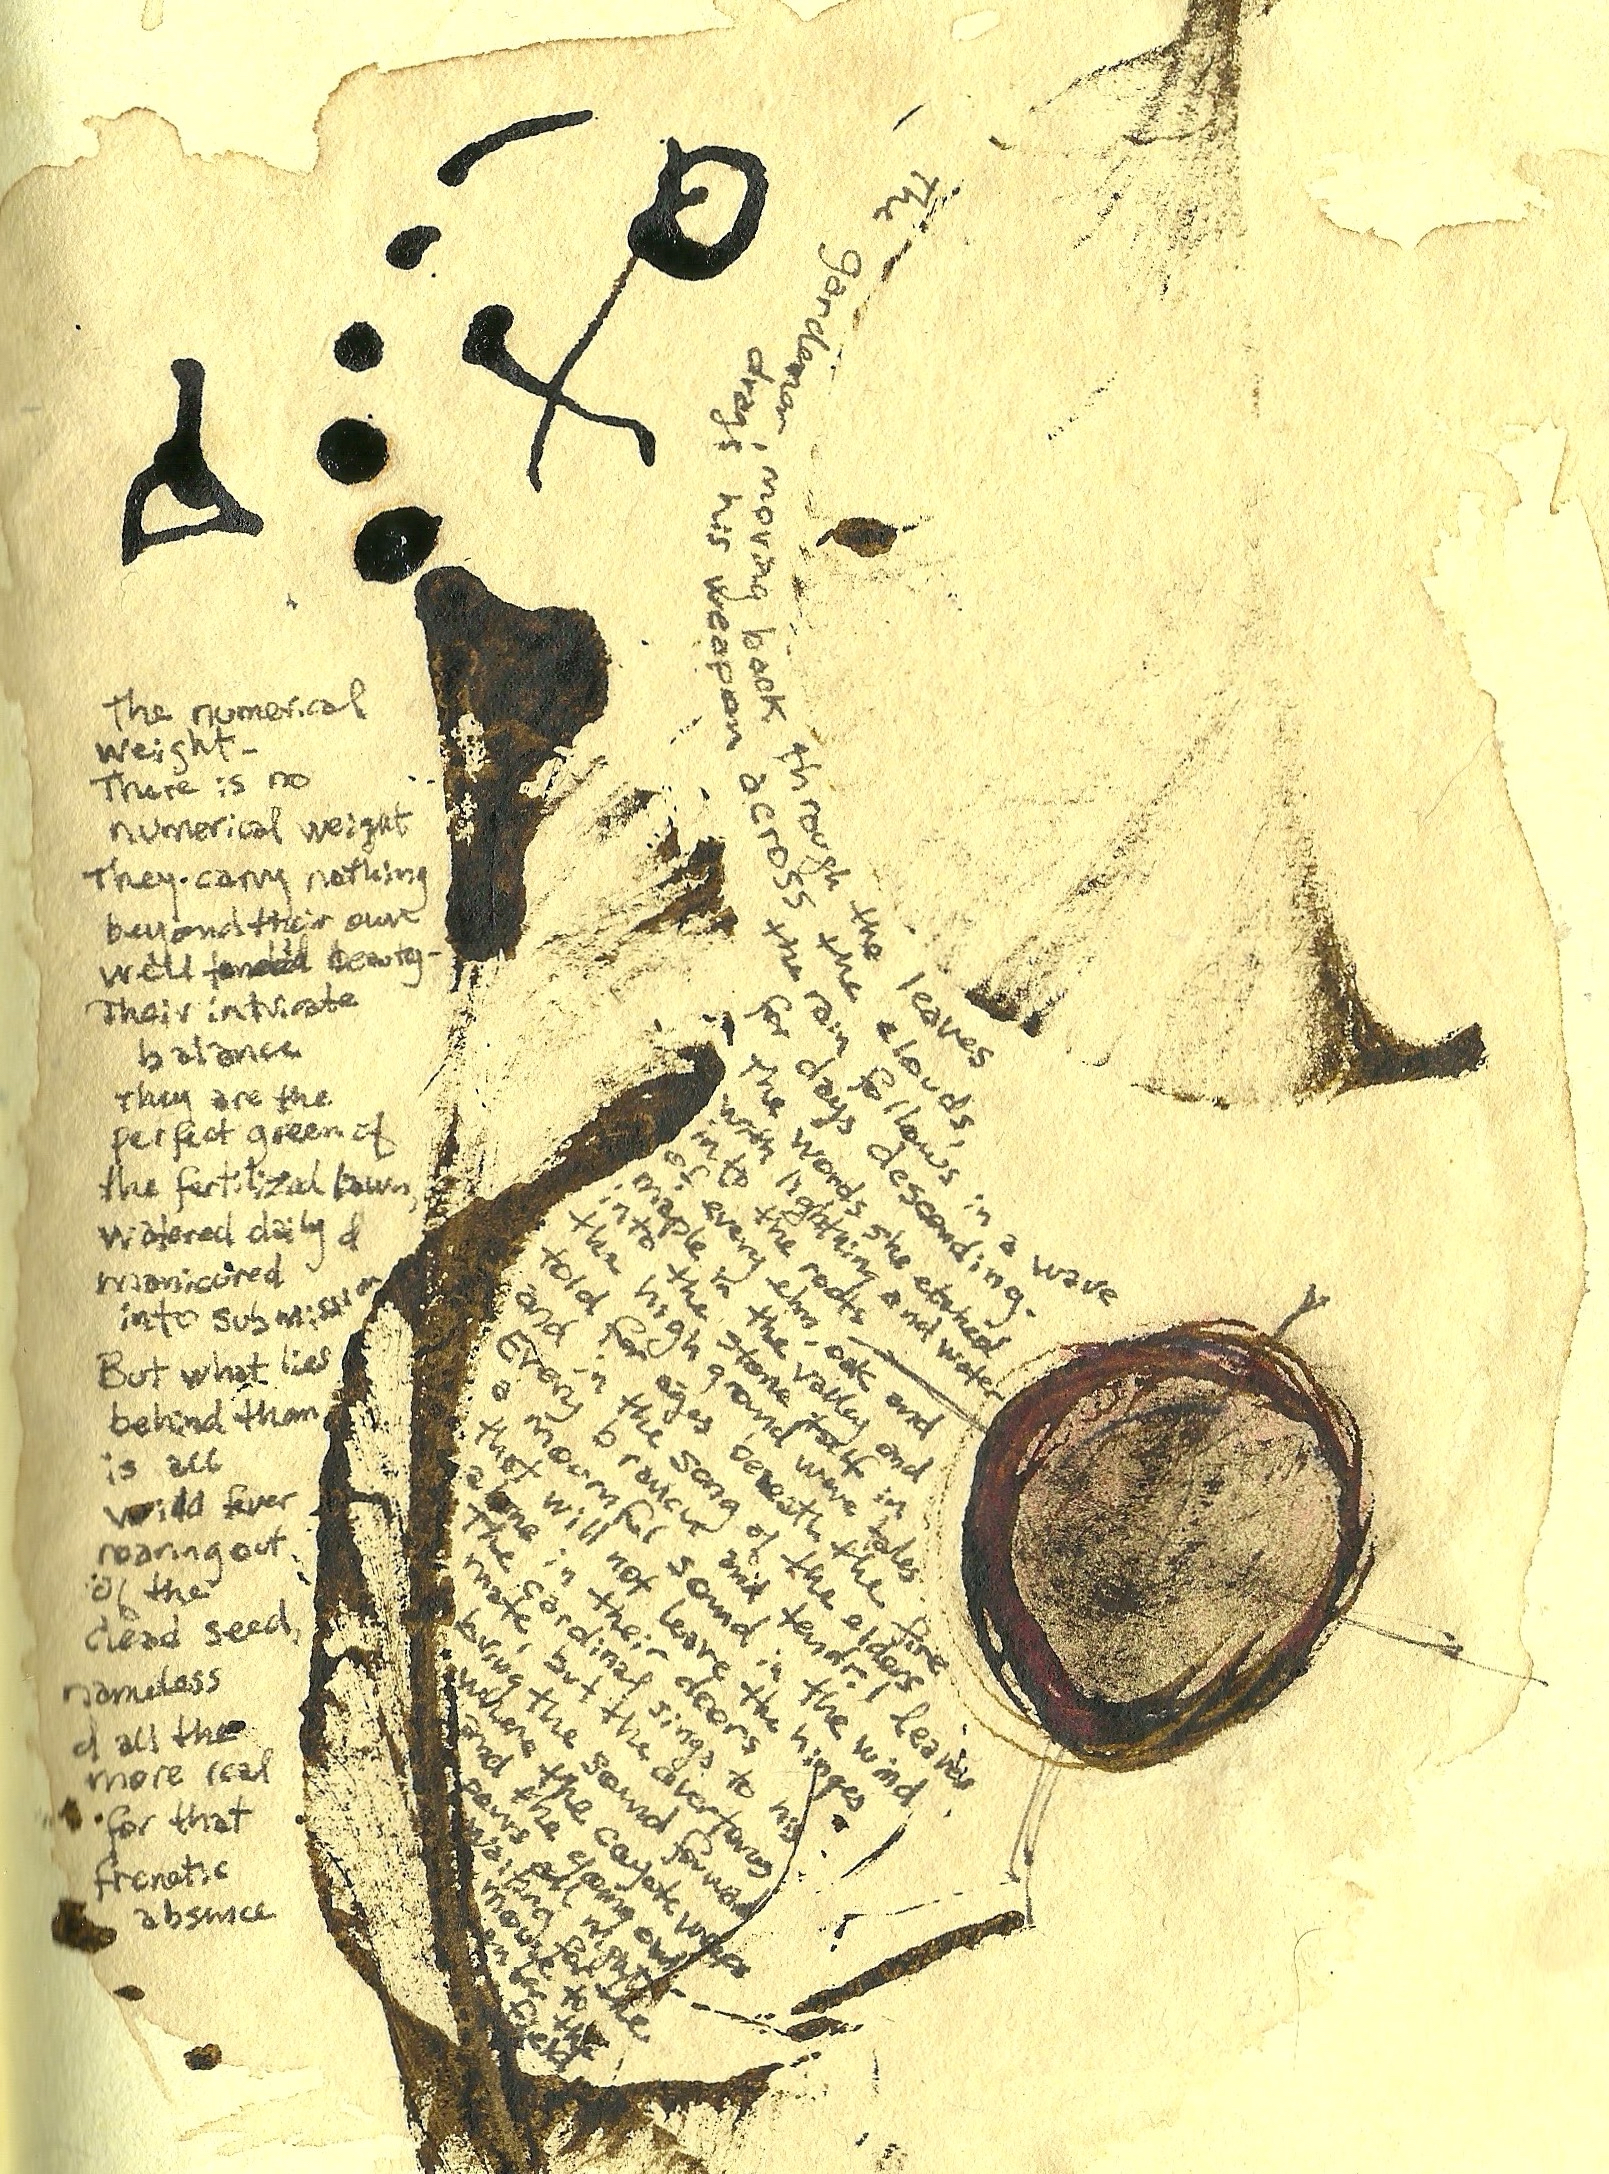 The numerical
weight-
There is no
numerical weight
They carry nothing
beyond their own
well tended beauty-
Their intricate
balance
They are the
perfect green of
the fertilizal lawn,
watered daily &
manicured
into submission
But what lies
behind them
is all
wild fever
roaring out
of the
dead seed,
nameless
& all the
more real
for that
frenetic
absence
The gardener, moving back through the leaves
drags his weapon across the clouds,
the rain follows in a wave
for days descending.
The words she etched
with lightning and water
into the roots
of every elm, oak and
maple in the valley and
into the stone that in
the high ground were tales
told for ages beneath the fire
and in the song of the elders
Every branch and tendril leaves
a mournful sound in the wind
that will not leave the hinges
alone in their doors.
The Cardinal sings to his
mate, but the overtones
bring the sound forward
where the coyote weeps
and the young owl
paws all night
waiting for the
mouse to
enter the
field